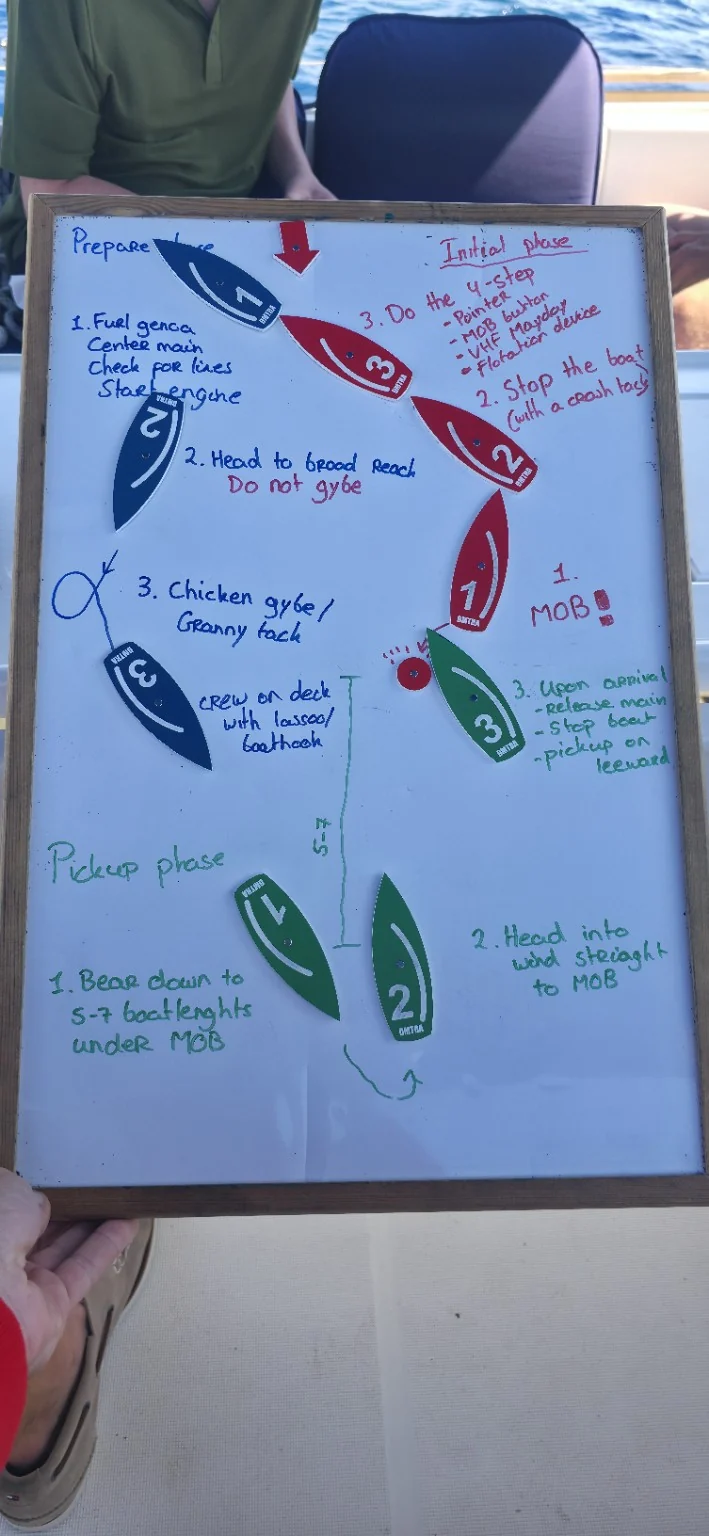 Prepare
1. Fuel genoa
Center main
Check for lines
Start engine
2. Head to broad reach
Do not gybe
3. Chicken gybe/
Granny tack
crew on deck
with lassoo/
boathook
Initial phase
3. Do the 4-step
- Pointer
- MOB button
- VHF Mayday
- Flotation device
2. Stop the boat
(with a crash tack)
1.
MOB!
3. Upon arrival
- Release main
- Stop boat
- pickup on
leeward
5-7
Pickup phase
1. Bear down to
5-7 boatlenghts
under MOB
2. Head into
wind strieght
to MOB
1
3
2
1
2
3
3
1
2